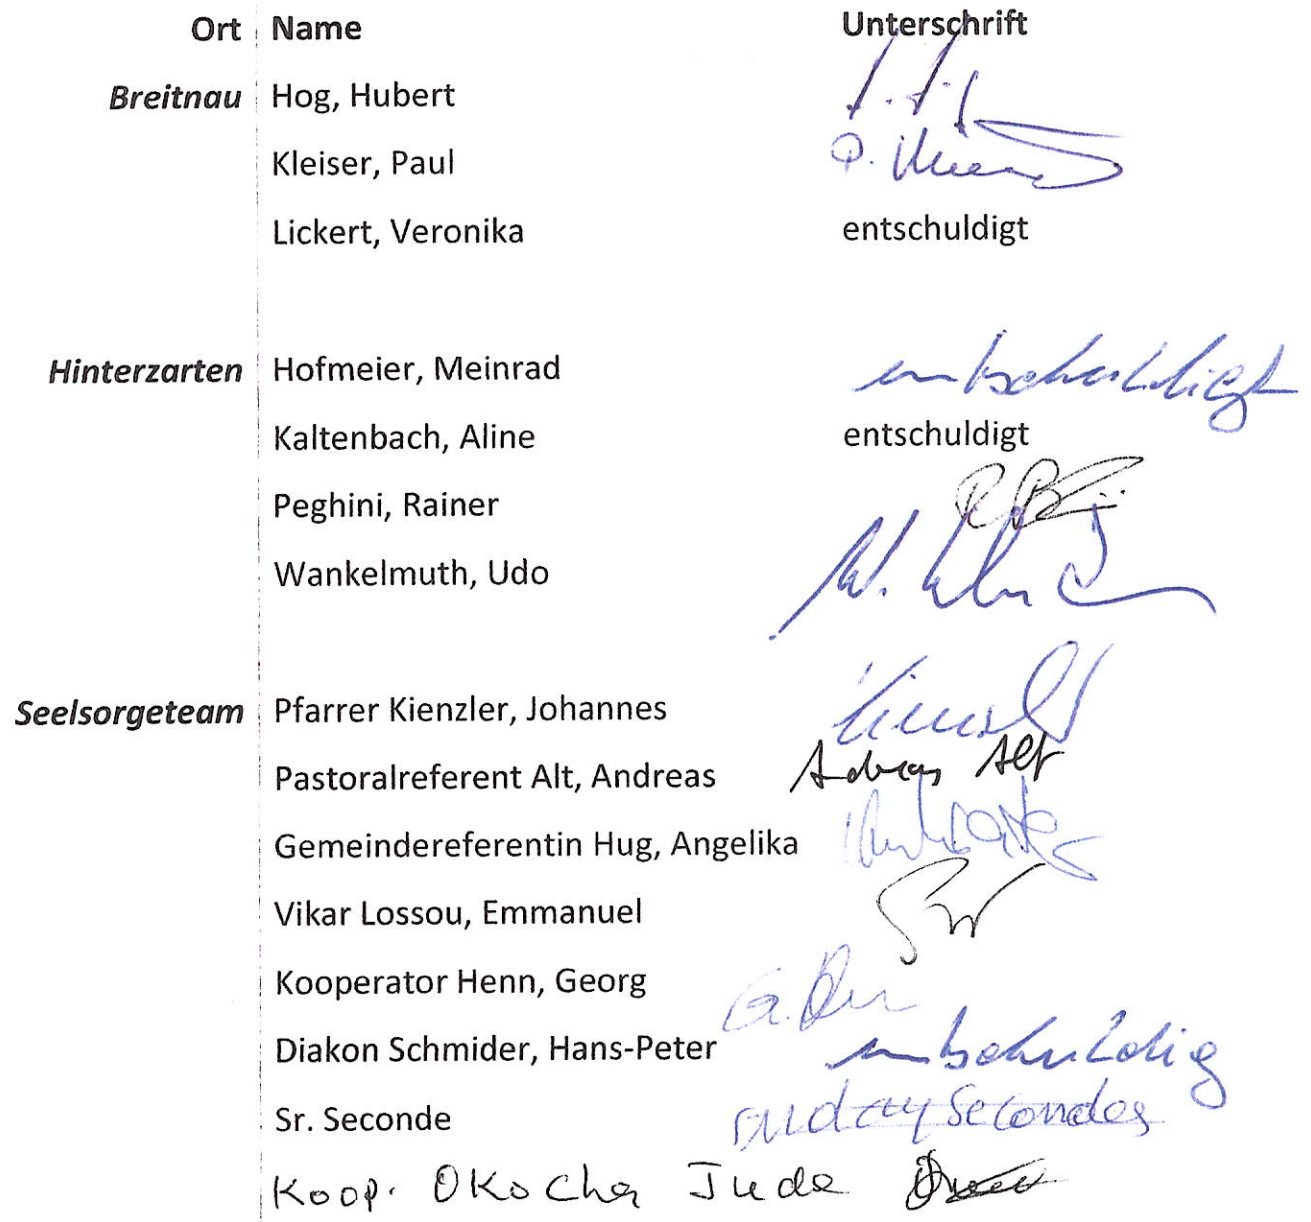 Ort Name Unterschrift
Breitnau Hog, Hubert
Kleiser, Paul P.
Lickert, Veronika entschuldigt
Hinterzarten Hofmeier, Meinrad entschuldigt
Kaltenbach, Aline entschuldigt
Peghini, Rainer
Wankelmuth, Udo
Seelsorgeteam Pfarrer Kienzler, Johannes
Pastoralreferent Alt, Andreas Andreas Alt
Gemeindereferentin Hug, Angelika
Vikar Lossou, Emmanuel
Kooperator Henn, Georg G.
Diakon Schmider, Hans-Peter entschuldig
Sr. Seconde
Koop. Okocha Jude